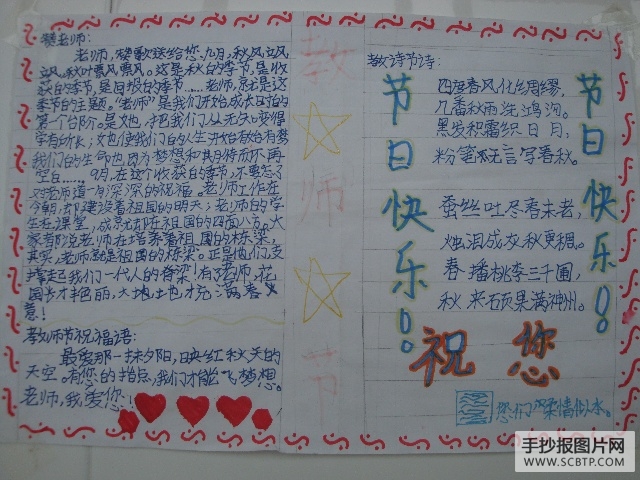 赞老师:
老师,赞歌送给您.九月,秋风飒
飒,秋叶飘飘。这是秋的季节,是收
获的季节,是回报的季节……老师,您是这
季节的主题。"老师"是我们开始成长时的
第一个台阶。是她,把我们从无知变得
学有所长;她使我们的人生开始有梦
我们的生命也因为梦想和期待而不再
空白……9月,在这个收获的季节,不要忘了
对老师道一声深深的祝福。老师工作在
今朝,却建设着祖国的明天;老师的学
生在课堂,成就却在祖国的四面八方。大
家都说老师在培养着祖国的栋梁,
其实,老师就是祖国的栋梁。正是他们支
撑起我们一代人的脊梁!有了老师,花
园才艳丽,大地才充满春
意!
教师节祝福语:
最爱那一抹夕阳,映红秋天的
天空。有您的指点,我们才能飞梦想。
老师,我爱您!
教
师
节
教诗节诗:
四度春风化绸缪,
几番秋雨洗鸿沟。
黑发积霜织日月,
粉笔无言写春秋。
蚕丝吐尽春未老,
烛泪成灰秋更稠。
春播桃李三千圃,
秋来硕果满神州。
节日快乐!
节日快乐!
祝您
您们"柔情似水。
手抄报图片网
WWW.SCBTP.COM